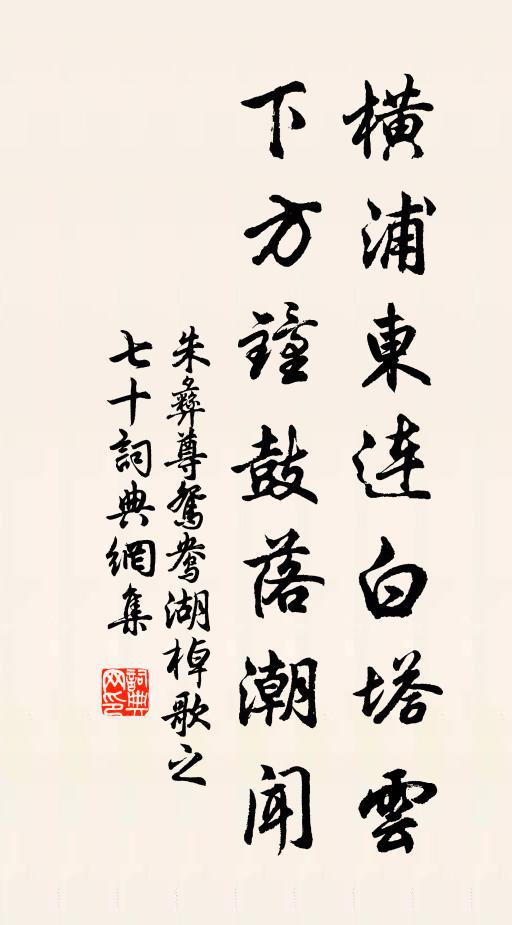 橫浦東連白塔雲
下方鐘鼓落潮聞
朱彝尊鴛鴦湖棹歌之
七十詞典網集
詞典网印